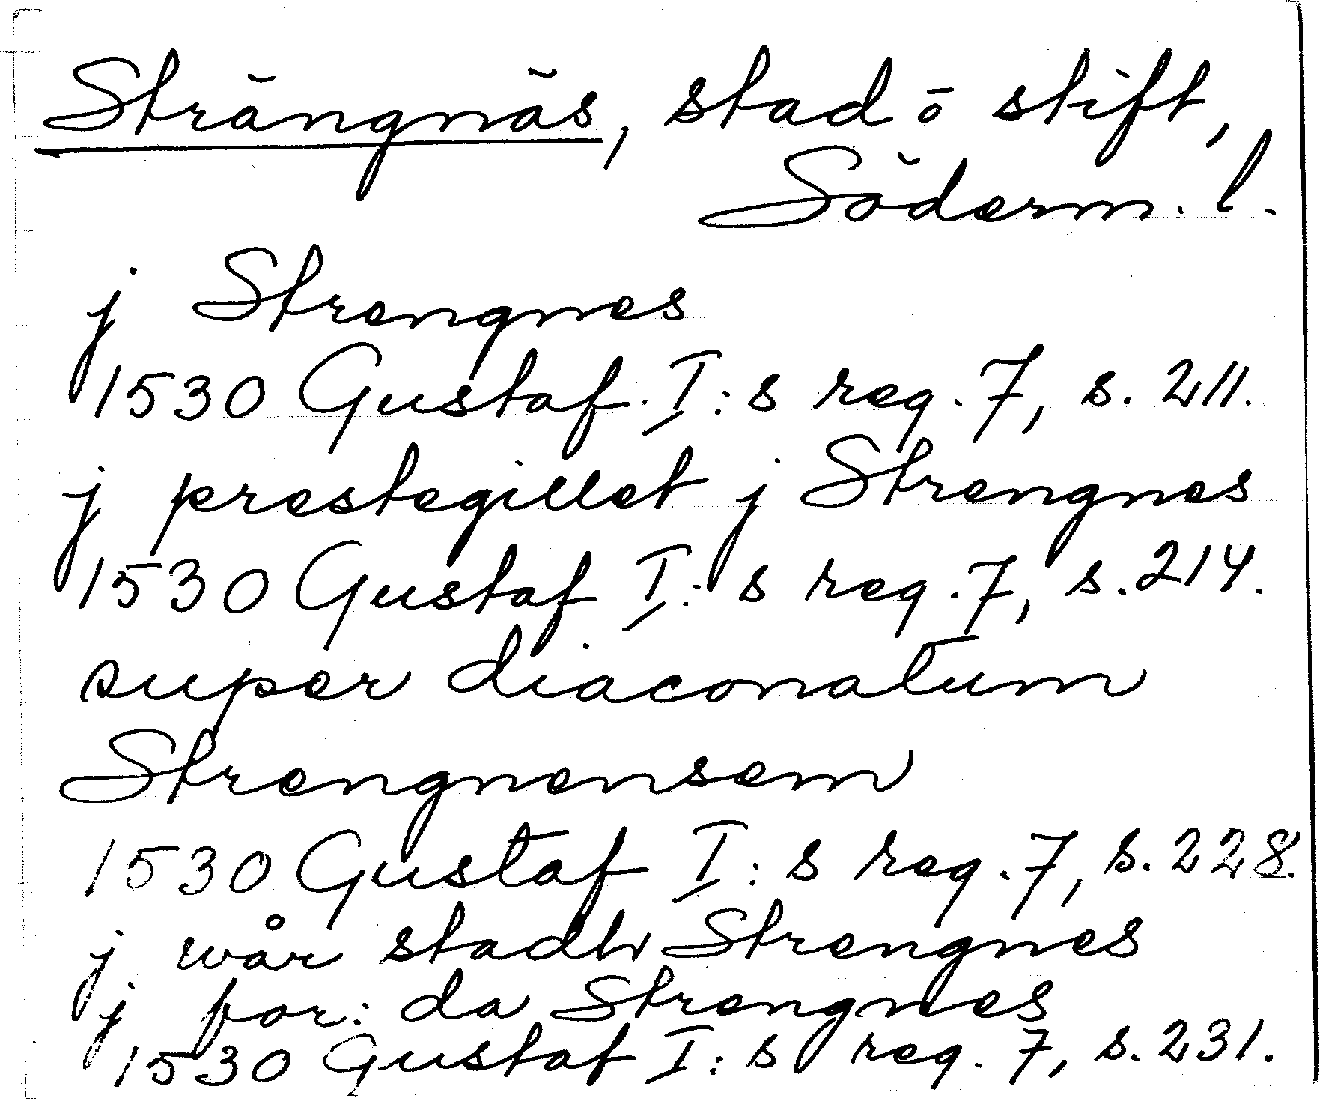 Strängnäs, stad o stift,
Söderm. l.
j Strengnes
1530 Gustaf I:s reg. 7, s. 211.
j prestegillet j Strengnes
1530 Gustaf I:s reg. 7, s. 214.
super diaconatum
Strengnensem
1530 Gustaf I:s reg. 7, s. 228.
j wår stadh Strengnes
j for: da Strengnes
1530 Gustaf I:s reg. 7, s. 231.